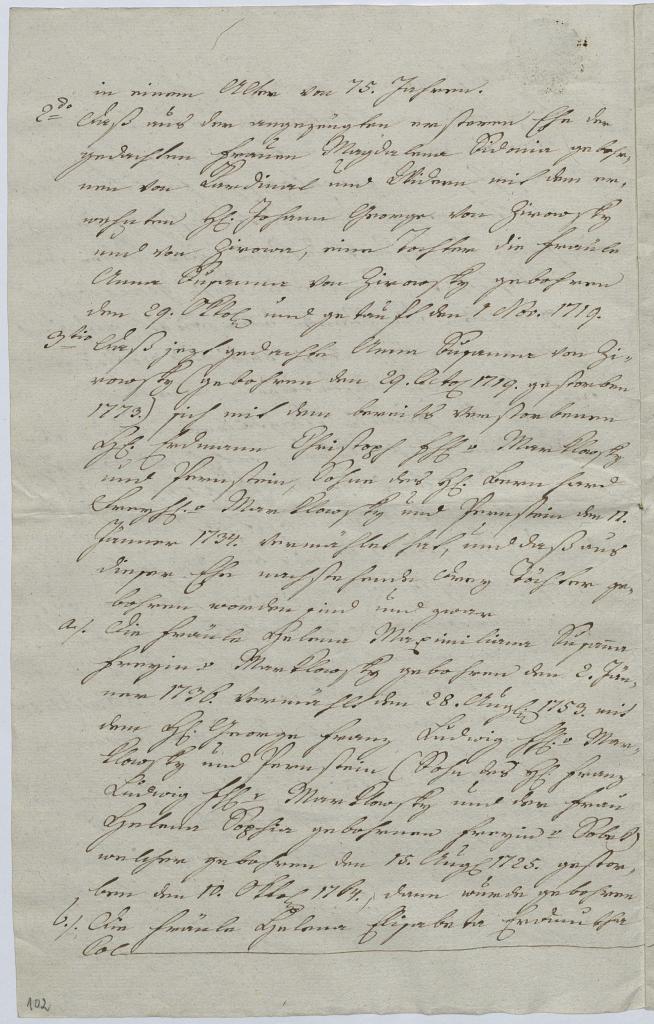 in einem Alter von 75. Jahren.
2do Daß aus der angezeugten ersteren Ehe der
gedachten Frauen Magdalena Sidonia gebohr¬
nen von Cardinal und Widern mit dem er¬
wehnten H: Johann George von Zirowsky
und von Zirowa, eine Tochter die Fräule
Anna Susanna von Zirowsky gebohren
den 29. Oktob und getauft den 1 Nov. 1719.
3tio Daß jezt gedachte Anna Susanna von Zi¬
rowsky (gebohren den 29. Octob 1719. gestorben
1773.) sich mit dem bereits verstorbenen
H: Erdmann Christoph Fh: v Marklowsky
und Pernstein, Sohne des H: Bernhard
Freyh: v Marklowsky und Pernstein den 11.
Jänner 1734. vermählet hat, und daß aus
dieser Ehe nachstehende drey Töchter ge¬
bohren worden sind und zwar
a./. Die Fräule Helena Maximiliana Susanna
Freyin v Marklowsky gebohren den 2. Jän¬
ner 1736. vermählt den 28. Aug 1753. mit
dem H: George Franz Ludwig Fh: v Mar¬
klowsky und Pernstein, (Sohn des H: Franz
Ludwig Fh: v Marklowsky und der Frau
Helena Sophia gebohrnen Freyin v
welcher gebohren den 15. Aug 1725. gestor¬
ben den 10. Oktob 1764., dann wurde gebohren
b./. Die Fräule Helena Elisabeta Erdmutha
102